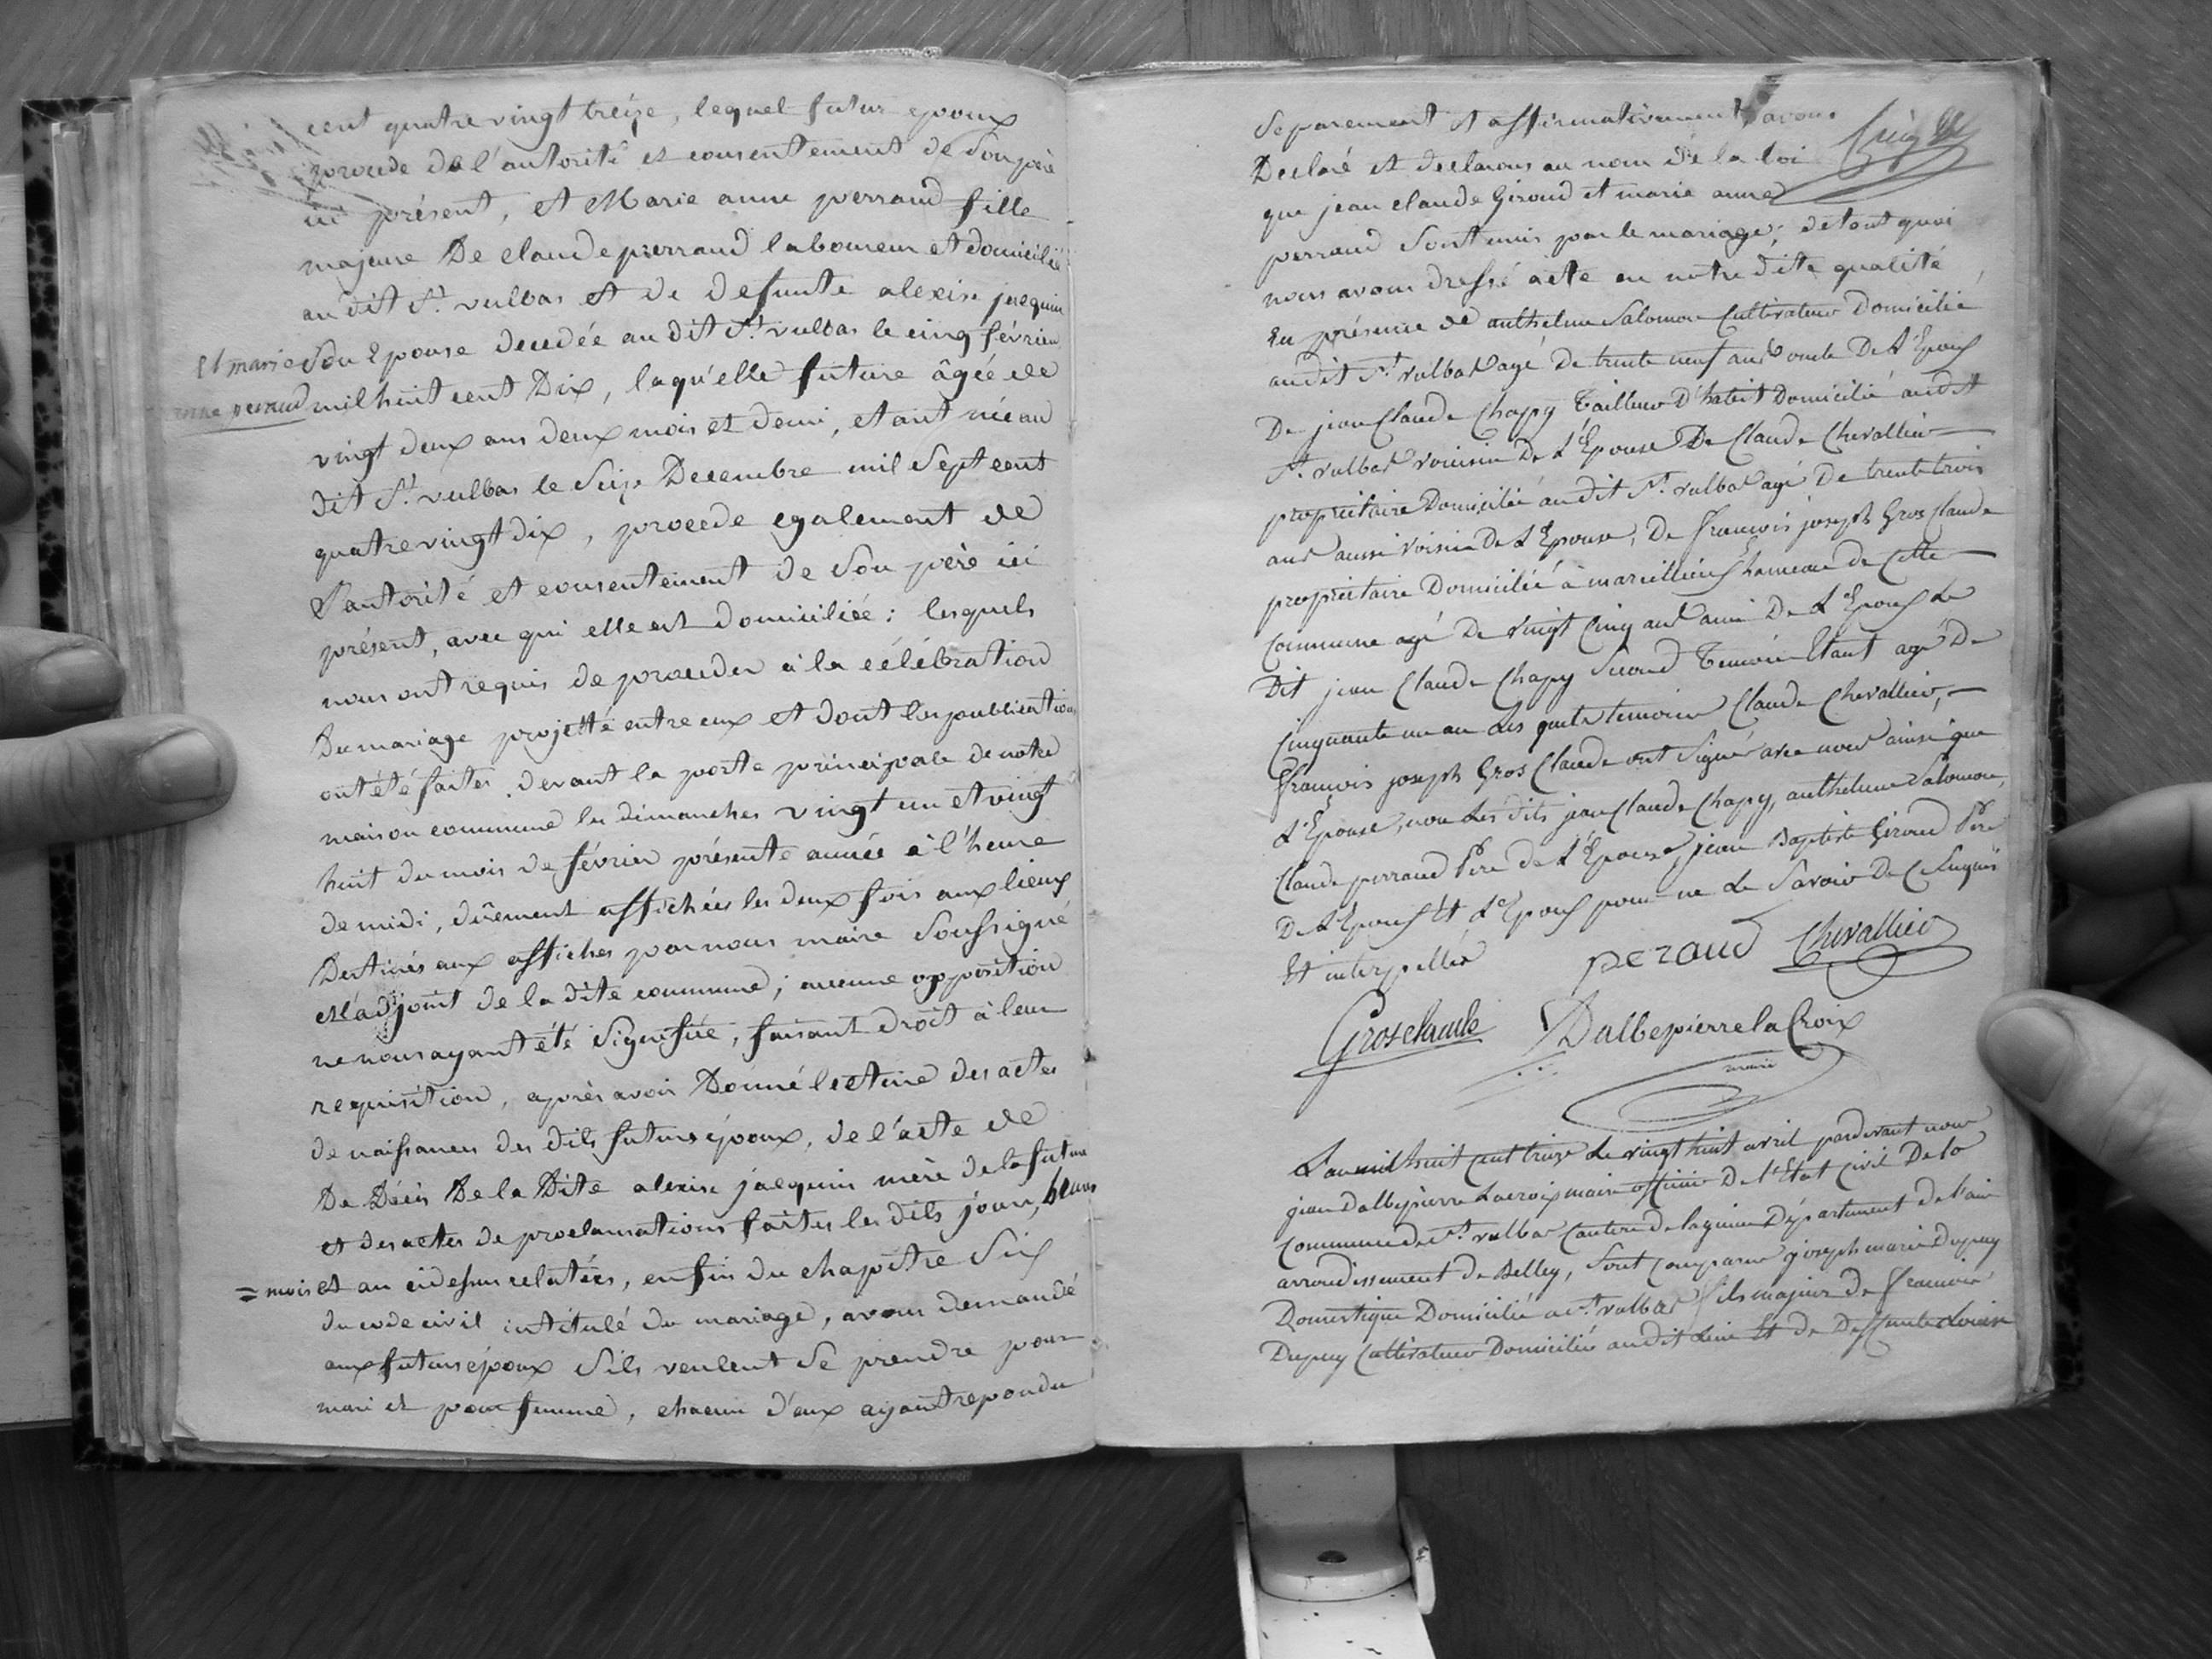 cent quatre vingt treize, lequel futur epoux
procede de l'autorité et consentement de son père
ici présent, et Marie anne perraud fille
majeure De claude perraud laboureur et domicilié
au dit St. vulbas et de defunte alexise jacquin
et marie
anne perraud
son Epouse decedée au dit St. vulbas le cinq février
mil huit cent Dix, laqu'elle future âgée de
vingt deux ans deux mois et demi, etant née au
dit St. vulbas le Seize Decembre mil Sept cent
quatre vingt dix, procede egalement de
l'autorité et consentement de Son père ici
présent, avec qui elle est domiciliée : lesquels
nous ont requis de proceder à la célébration
Du mariage projetté entre eux et dont les publications
ont été faites devant la porte principale de notre
maison commune les dimanches vingt un et vingt
huit du mois de février présente année à l'heure
de midi, dûement affichées les deux fois aux lieux
Destinés aux affiches par nous maire Soussigné
et l'adjoint de la dite commune ; aucune opposition
ne nous ayant été Signifiée, faisant droit à leur
requisition, après avoir Donné lecture des actes
de naissances des dits futurs époux, de l'acte de
De Décès De la Dite alexise jacquin mère de la future
et des actes de proclamations faites les dits jour, heures
= mois et an cidessus relatées, enfin du chapitre Six
du code civil intitulé du mariage, avons demandé
aux futurs époux S'ils veulent Se prendre pour
mari et pour femme, chacun d'eux ayant repondu
Separement et affirmativement, avons
Declaré et declarons au nom de la loi
que jean claude Giroud et marie anne
perraud Sont unis par le mariage ; de tout quoi
nous avons dressé acte en notre dite qualité
En présence de anthelme Salomon Cultivateur Domicilié
audit St. vulbas agé De trente neuf ans oncle De L'Epoux
De jean Claude Chapy Tailleur D'habit Domicilié audit
St. vulbas voisin De L'Epouse De Claude Chevallier
propriétaire Domicilié audit St. vulbas agé De trente trois
ans aussi voisin De L'Epouse, De françois joseph Gros Claude
propriétaire Domicilié à marcillieux hameau de Cette
Commune agé De vingt Cinq ans ami De L'Epoux Le
Dit jean Claude Chapy Second Temoin Etant agé De
Cinquante un an Les quels temoins Claude Chevallier,
françois joseph Gros Claude ont Signé avec nous ainsi que
L'Epouse, non Les dits jean Claude Chapy, anthelme Salomon,
Claude perraud Père de L'Epouse, jean Baptiste Giroud Père
De L'Epoux Et L'Epoux pour ne Le Savoir De Ce Enquis
Et interpellés
peraud Chevallier
Grosclaude Dalbepierre la Croix
maire
L'an mil huit cent treize Le vingt huit avril pardevant nous
jean Dalbepierre Lacroix maire officier De l'Etat Civil De la
Commune de St. vulbas Canton de lagnieu Département de l'ain
arrondissement de Belley, Sont Comparus joseph marie Dupuy
Domestique Domicilié a St. vulbas fils majeur de françois
Dupuy Cultivateur Domicilié audit Lieu Et de Deffunte Louise